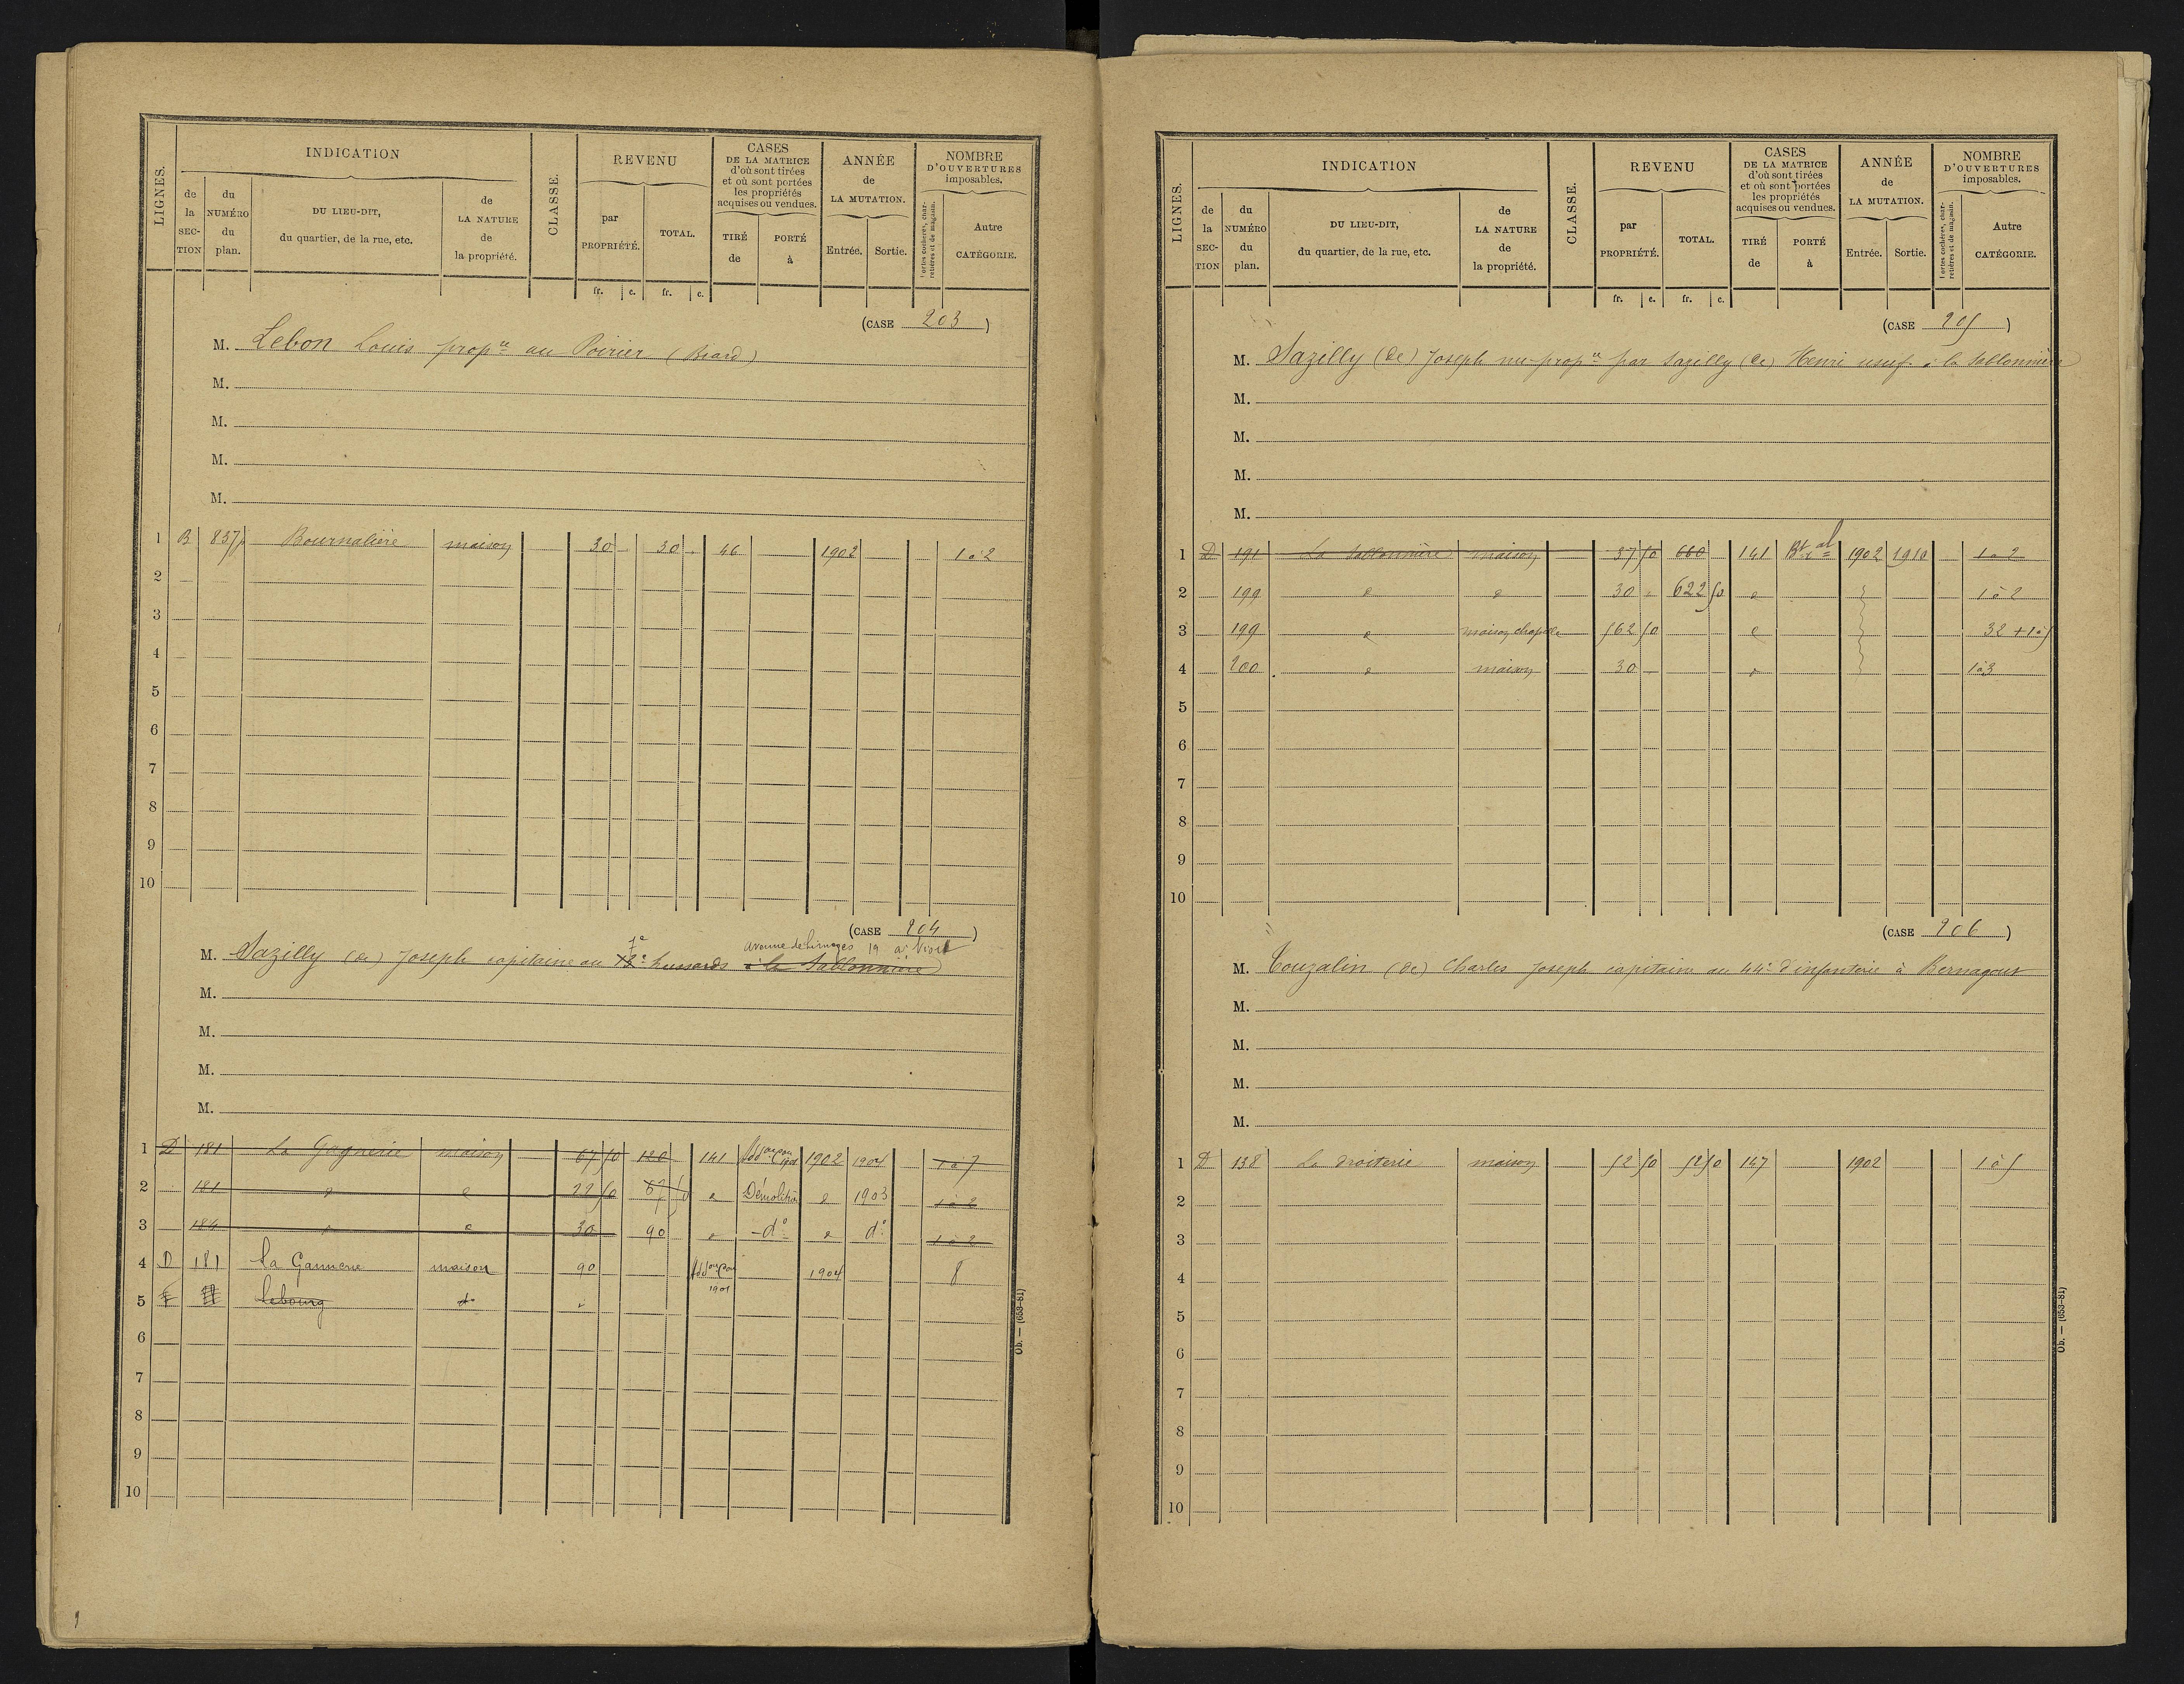 LIGNES.
INDICATION
de la SECTION
du NUMÉRO du plan.
DU LIEU-DIT, du quartier, de la rue, etc.
de LA NATURE de la propriété.
CLASSE.
REVENU
par PROPRIÉTÉ.
TOTAL.
fr. c. fr. c.
CASES DE LA MATRICE d'où sont tirées et où sont portées les propriétés acquises ou vendues.
TIRÉ de
PORTÉ à
ANNÉE de LA MUTATION.
Entrée. Sortie.
NOMBRE D'OUVERTURES imposables.
Portes cochères, charretières et de magasin.
Autre CATÉGORIE.
(CASE 203)
M. Lebon Louis propre au Poirier (Biard)
M.
M.
M.
M.
1 B 857p Bournalière maison 30 30 46 1902 1 à 2
2
3
4
5
6
7
8
9
10
(CASE 204)
7e avenue de Limoges 19 à Niort
M. Sazilly (de) Joseph capitaine au 12e hussards à la Sablonnière
M.
M.
M.
M.
1 D 181 La Gagnerie maison 67 50 120 141 1902 1904 1 à 7
2 181 d d 22 50 67 50 d Démolition d 1903 1 à 2
3 184 d d 30 90 d do d do 1 à 2
4 D 181 maison 90 1904 8
1901
5 Lebourg do
6
7
8
9
10
Ob. — (653-81)
LIGNES.
INDICATION
de la SECTION
du NUMÉRO du plan.
DU LIEU-DIT, du quartier, de la rue, etc.
de LA NATURE de la propriété.
CLASSE.
REVENU
par PROPRIÉTÉ.
TOTAL.
fr. c. fr. c.
CASES DE LA MATRICE d'où sont tirées et où sont portées les propriétés acquises ou vendues.
TIRÉ de
PORTÉ à
ANNÉE de LA MUTATION.
Entrée. Sortie.
NOMBRE D'OUVERTURES imposables.
Portes cochères, charretières et de magasin.
Autre CATÉGORIE.
(CASE 205)
M. Sazilly (de) Joseph nu-propre par Sazilly (de) Henri usuf. à la Sablonnière
M.
M.
M.
M.
1 D 191 La Sablonnière maison 37 50 660 141 1902 1910 1 à 2
2 199 d d 30 622 50 d 1 à 2
3 199 d maison chapelle 562 50 d 32 + 1 à 5
4 200 d maison 30 d 1 à 3
5
6
7
8
9
10
(CASE 206)
M. Touzalin (de) Charles Joseph capitaine au 44e d'infanterie à Bernagout
M.
M.
M.
M.
1 D 138 La Droiterie maison 52 50 52 50 147 1902 1 à 5
2
3
4
5
6
7
8
9
10
Ob. — (653-81)